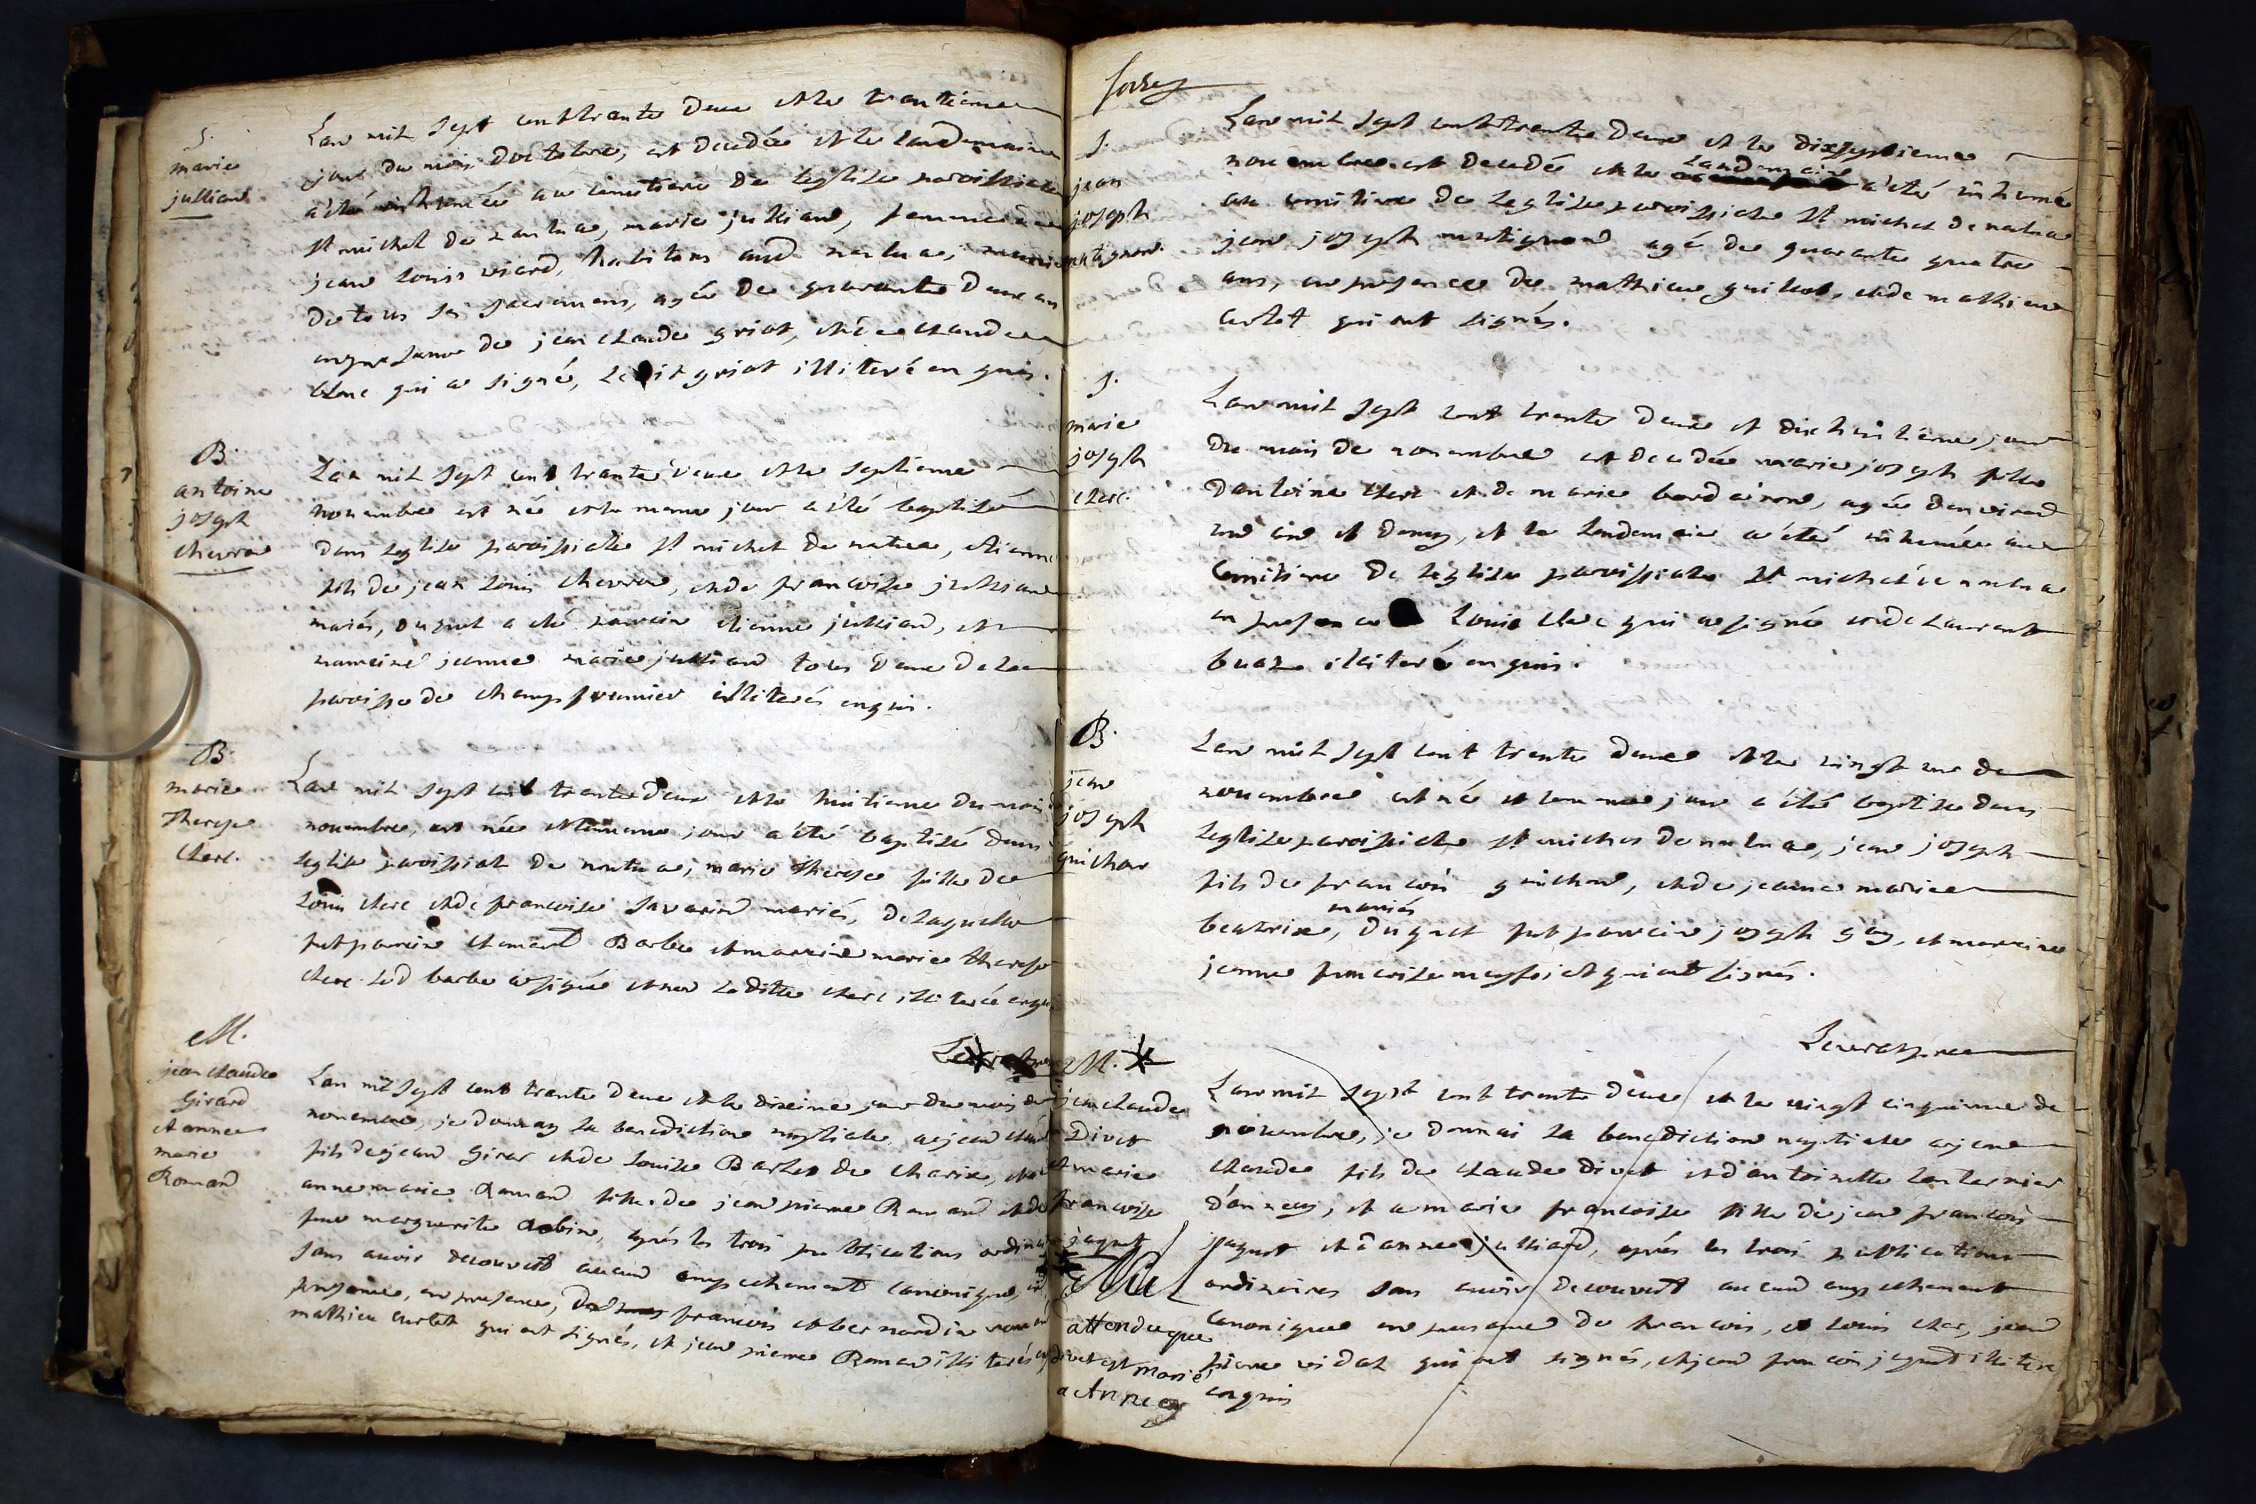 S.
marie
julliand
Lan mil sept cent trante deux et le trantiéme
jour du mois doctobre, est decedée et le landemain
a été inhumée au cimetiere de leglise paroissiale
st michel de nantua, marie julliand, femme a
jean Louis viard, habitans aud nantua,
de tous ses sacremens, agée de quarante deux ans
en presence de jean claude griot, et de claude
clerc qui a signé, ledit griot illiteré enquis.
B.
antoine
joseph
chevron
Lan mil sept cent trante deux et le septieme
novembre est née et le meme jour a été baptisé
dans leglise paroissialle st michel de nantua, etienne
fils de jean Louis chevron, et de francoise julliand
mariés, duquel a été parrain etienne julliand, et
marreine jeanne marie julliand tous deux de la
paroisse de champfromier illiterés enquis.
B.
marie
Therese
Clerc.
Lan mil sept cent trante deux et le huitieme du mois de
novembre, est née et le meme jour a été baptisé dans
leglise paroissiale de nantua, marie therese fille de
Louis clerc et de francoise savarin mariés, de laquelle
fut parrein clemend Barbe et marreine marie therese
clerc. led barbe a signé et non laditte clerc illiterée enquis
M.
jean claude
Girard
et anne
marie
Romand
Lan mil sept cent trante deux et le dixeime jour du mois de
novembre, je donnay la benediction nuptiale a jean claude
fils de jean Girar et de Louise Barlet de charix, et a
anne marie Romand fille de jean pierre Romand et de
feue marguerite Robin, aprés les trois publications ordinaires
sans avoir decouvert aucun empechement canonique, en
presence, de francois et bernardin romand
mathieu curlet qui ont signés, et jean pierre Romand illiterés enquis
S.
jean
joseph
mutignon
Lan mil sept cent trante deux et le dixseptieme
novembre est decedée et le landemain a été inhumé
au cimitiere de leglise paroissiale st michel de nantua
jean joseph mutignon agé de quarante quatre
ans, en presence de mathieu guillot, et de mathieu
curlet qui ont signés.
S.
marie
joseph
clerc.
Lan mil sept cent trante deux et dixhuitieme jour
du mois de novembre est decedée marie joseph fille
dantoine clerc et de marie bordairon, agée denviron
un an et demy, et le lendemain a été inhumée au
cimitiere de leglise paroissiale st michel de nantua
en presence Louis clerc qui a signé et de Laurent
buaz illiteré enquis.
B.
jean
joseph
guichon
Lan mil sept cent trante deux et le vingt un de
novembre est né et le meme jour a été baptise dans
leglise paroissiale st michel de nantua, jean joseph
fils de francois guichon, et de jeanne marie
beatrix, mariés duquel fut parrein joseph goy, et marreine
jeanne francoise meyssiat qui ont signés.
M.
jean claude
Divet
et marie
francoise
jaquet
Nul
attendu que
divet est marié
a Annecy
Lan mil sept cent trante deux et le vingt cinquieme de
novembre, je donnai la benediction nuptiale a jean
claude fils de claude divet et dantoinette lanternier
dannecy, et a marie francoise fille de jean francois
jaquet et danne julliard, aprés les trois publications
ordinaires sans avoir decouvert aucun empechement
canonique en presence de francois, et Louis clerc, jean
pierre vidal qui ont signés, et jean francois jaquet illiteré
enquis